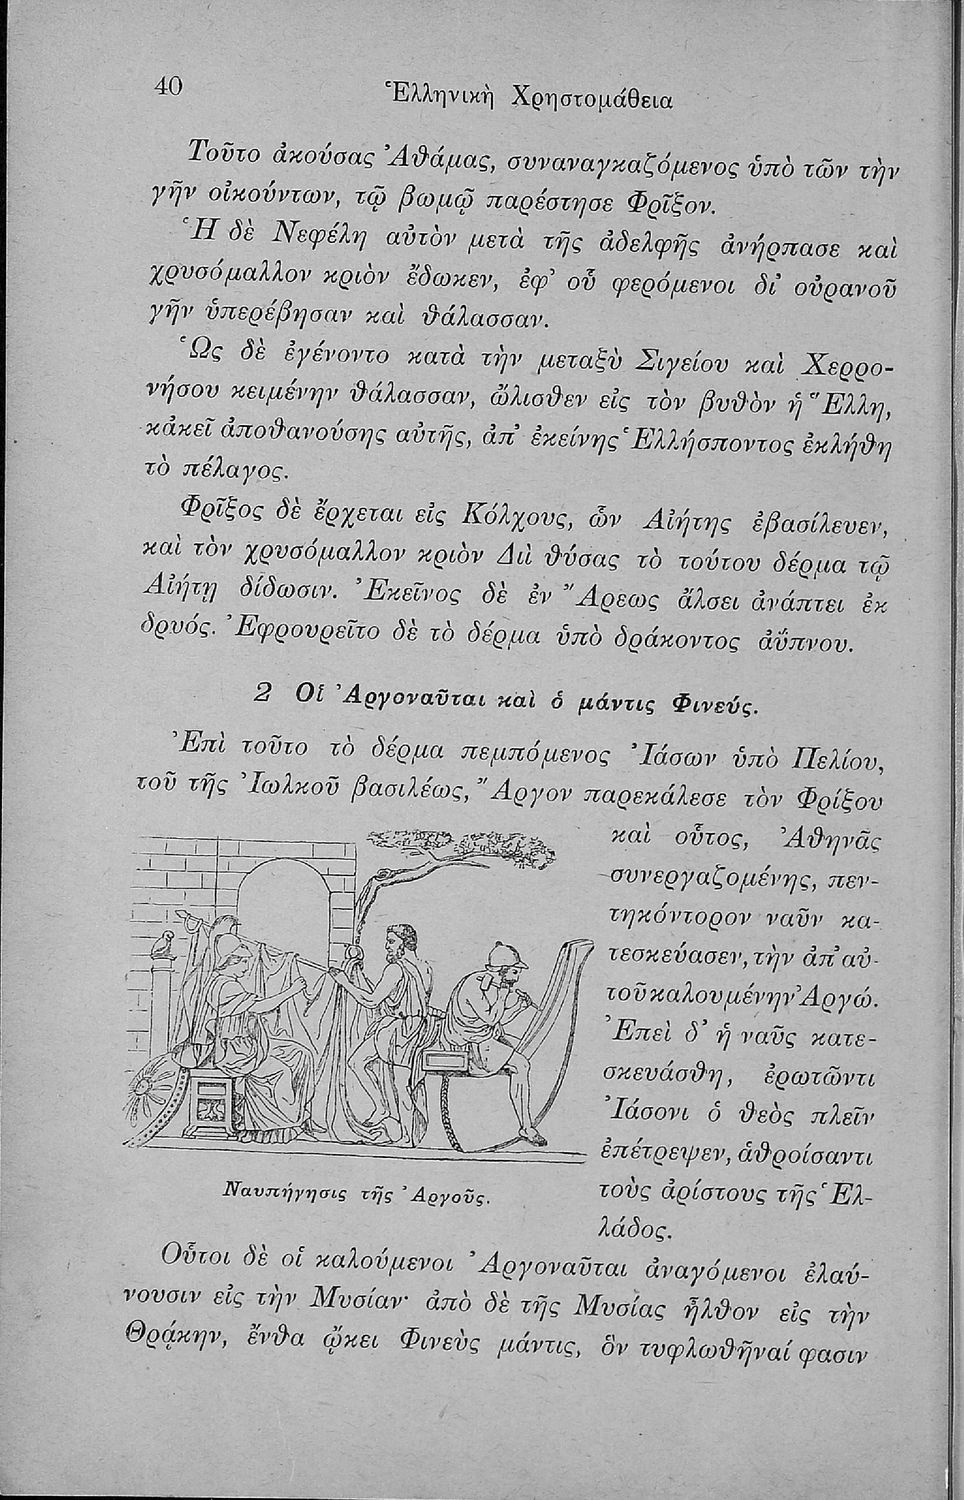 40
Ἑλληνικὴ Χρηστομάθεια
Τοῦτο ἀκούσας Ἀθάμας, συναναγκαζόμενος ὑπὸ τῶν τὴν
γῆν οἰκούντων, τῷ βωμῷ παρέστησε Φρῖξον.
Ἡ δὲ Νεφέλη αὐτὸν μετὰ τῆς ἀδελφῆς ἀνήρπασε καὶ
χρυσόμαλλον κριὸν ἔδωκεν, ἐφ' οὗ φερόμενοι δι' οὐρανοῦ
γῆν ὑπερέβησαν καὶ θάλασσαν.
Ὡς δὲ ἐγένοντο κατὰ τὴν μεταξὺ Σιγείου καὶ Χερρο-
νήσου κειμένην θάλασσαν, ὤλισθεν εἰς τὸν βυθὸν ἡ Ἕλλη,
κἀκεῖ ἀποθανούσης αὐτῆς, ἀπ' ἐκείνης Ἑλλήσποντος ἐκλήθη
τὸ πέλαγος.
Φρῖξος δὲ ἔρχεται εἰς Κόλχους, ὧν Αἰήτης ἐβασίλευεν,
καὶ τὸν χρυσόμαλλον κριὸν Διὶ θύσας τὸ τούτου δέρμα τῷ
Αἰήτῃ δίδωσιν. Ἐκεῖνος δὲ ἐν Ἄρεως ἄλσει ἀνάπτει ἐκ
δρυός. Ἐφρουρεῖτο δὲ τὸ δέρμα ὑπὸ δράκοντος ἀΰπνου.
2 Οἱ Ἀργοναῦται καὶ ὁ μάντις Φινεύς.
Ἐπὶ τοῦτο τὸ δέρμα πεμπόμενος Ἰάσων ὑπὸ Πελίου,
τοῦ τῆς Ἰωλκοῦ βασιλέως, Ἄργον παρεκάλεσε τὸν Φρίξου
καὶ οὗτος, Ἀθηνᾶς
συνεργαζομένης, πεν-
τηκόντορον ναῦν κα-
τεσκεύασεν, τὴν ἀπ' αὐ-
τοῦ καλουμένην Ἀργώ.
Ἐπεὶ δ' ἡ ναῦς κατε-
σκευάσθη, ἐρωτῶντι
Ἰάσονι ὁ θεὸς πλεῖν
ἐπέτρεψεν, ἀθροίσαντι
τοὺς ἀρίστους τῆς Ἑλ-
λάδος.
Ναυπήγησις τῆς Ἀργοῦς.
Οὗτοι δὲ οἱ καλούμενοι Ἀργοναῦται ἀναγόμενοι ἐλαύ-
νουσιν εἰς τὴν Μυσίαν· ἀπὸ δὲ τῆς Μυσίας ἦλθον εἰς τὴν
Θρᾴκην, ἔνθα ᾤκει Φινεὺς μάντις, ὃν τυφλωθῆναί φασιν